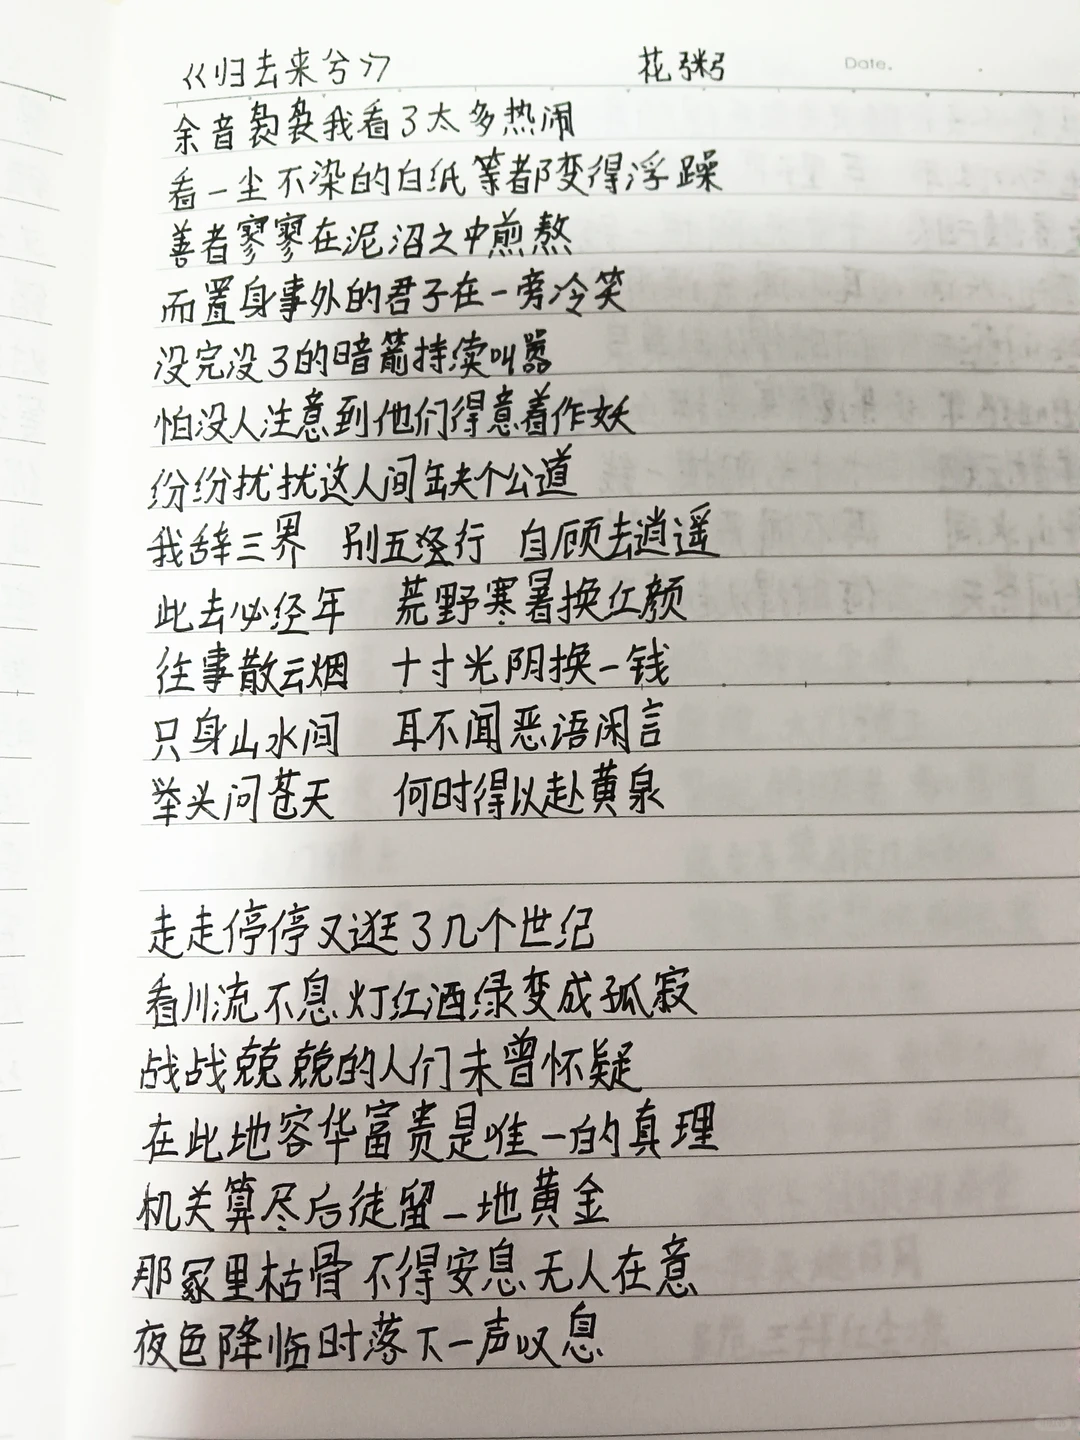 《归去来兮》 花粥 Date.
余音袅袅我看了太多热闹
看一尘不染的白纸等都变得浮躁
善者寥寥在泥沼之中煎熬
而置身事外的君子在一旁冷笑
没完没了的暗箭持续叫嚣
怕没人注意到他们得意着作妖
纷纷扰扰这人间缺个公道
我辞三界 别五行 自顾去逍遥
此去必经年 荒野寒暑换红颜
往事散云烟 十寸光阴换一钱
只身山水间 耳不闻恶语闲言
举头问苍天 何时得以赴黄泉
走走停停又逛了几个世纪
看川流不息灯红酒绿变成孤寂
战战兢兢的人们未曾怀疑
在此地容华富贵是唯一的真理
机关算尽后徒留一地黄金
那冢里枯骨不得安息无人在意
夜色降临时落下一声叹息